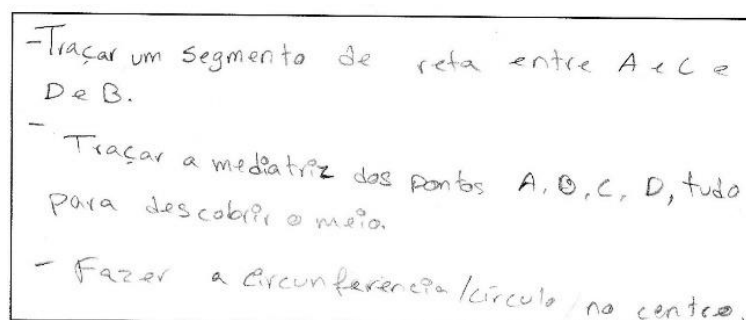 -Traçar um segmento de reta entre A e C e
D e B.
- Traçar a mediatriz dos pontos A, B, C, D, tudo
para descobrir o meio.
- Fazer a circunferência/círculo no centro.